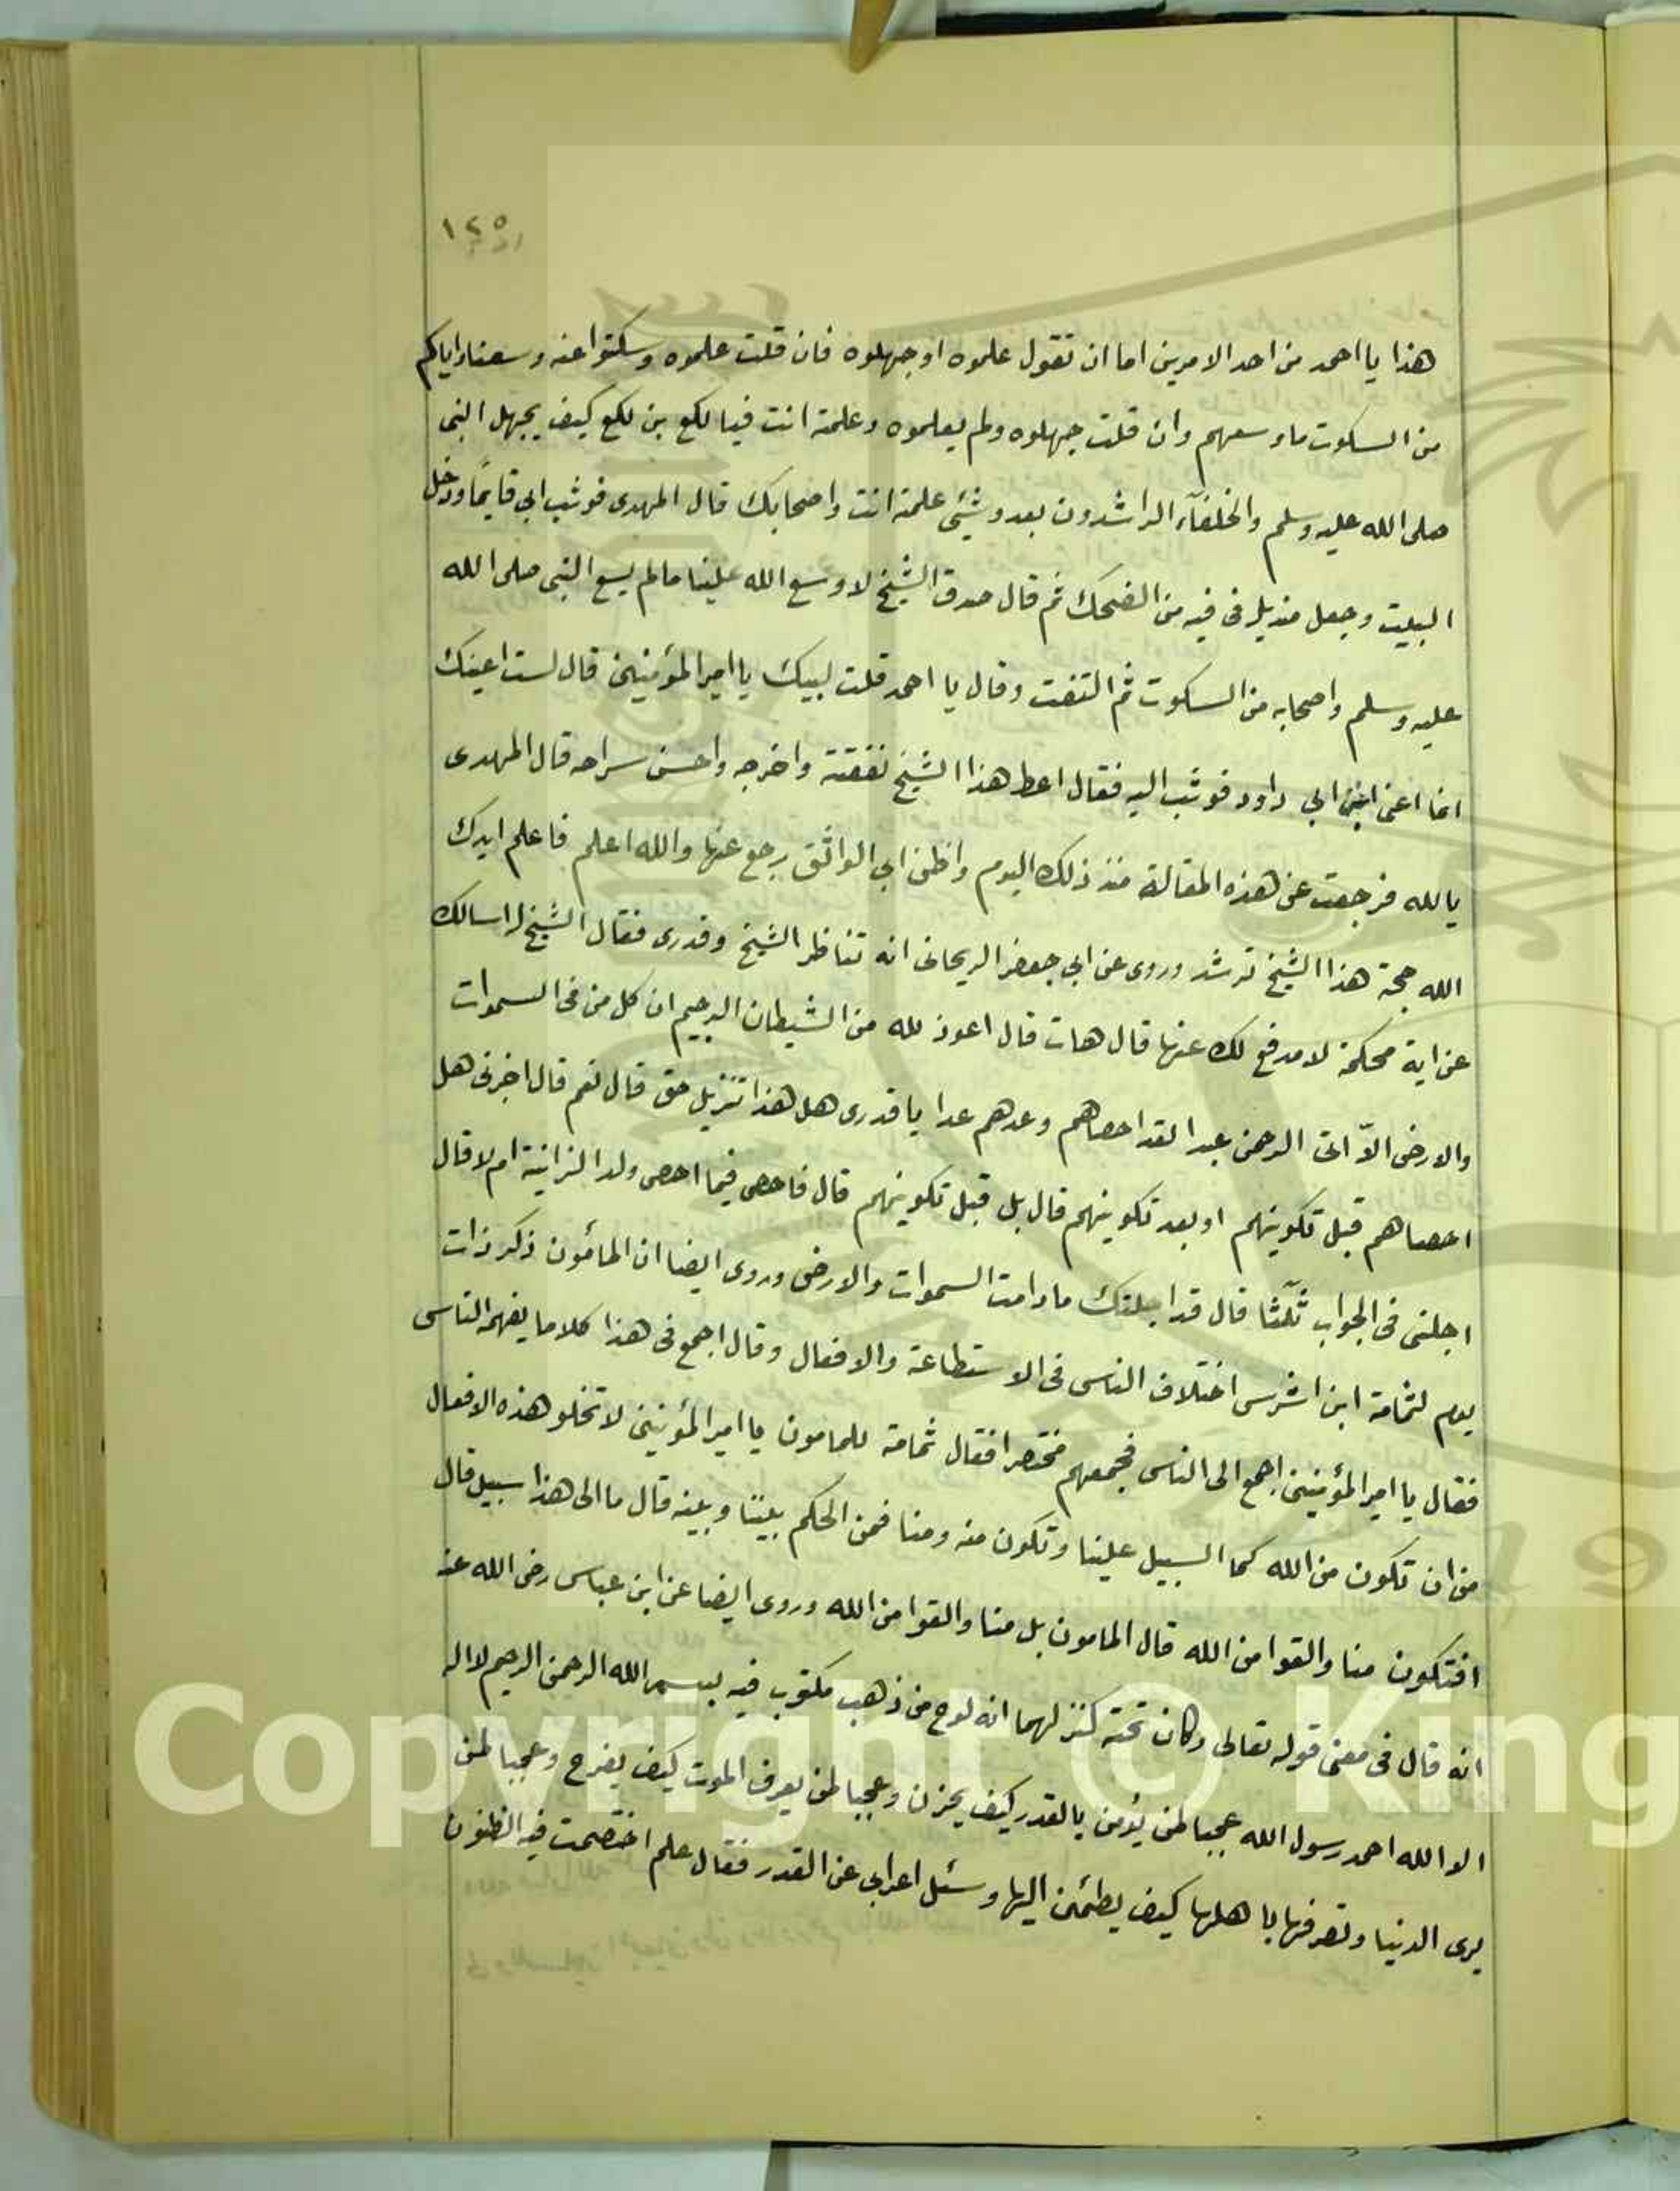 ١٢٥
هذا يا احمد من احد الامرين اما ان تقول علموه او جهلوه فان قلت علموه وسكتوا عنه وسعنا واياكم
من السكوت ما وسعهم وان قلت جهلوه ولم يعلموه وعلمته انت فيا لكع بن لكع كيف يجهل النبى
صلى الله عليه وسلم والخلفآء الراشدون بعده شئ علمته انت واصحابك قال المهدى فوثب ابي قايمًا ودخل
البيت وجعل منديل فى فيه من الضحك ثم قال صدق الشيخ لا وسع الله علينا مالم يسع النبى صلى الله
عليه وسلم واصحابه من السكوت ثم التفت وقال يا احمد قلت لبيك يا امير المؤمنين قال لست اعينك
انما اعنى ابن ابي داود فوثب اليه فقال اعط هذا الشيخ نفقته واخرجه واحسن سراحه قال المهدى
بالله فرجعت عن هذه المقالة منذ ذلك اليوم واظن ابي الواثق رجع عنها والله اعلم فاعلم ايدك
الله حجة هذا الشيخ ترشد وروى عن ابي جعفر الريحانى انه تناظر الشيخ وقدرى فقال الشيخ له اسالك
عن اية محكمة لا مدفع لك عنها قال هات قال اعوذ لله من الشيطان الرجيم ان كل من فى السموات
والارض الاّ اتى الرحمن عبدا لقد احصاهم وعدهم عدا يا قدرى هل هذا تنزيل حق قال نعم قال اخبرنى هل
احصاهم قبل تكوينهم او بعد تكوينهم قال بل قبل تكوينهم قال فاحصى فيما احصى ولد الزانية ام لا قال
اجلنى فى الجواب ثلثا قال قد اجلتك ما دامت السموات والارض وروى ايضا ان المأمون ذكر ذات
يوم لثمامة ابن اشرس اختلاف الناس فى الاستطاعة والافعال وقال اجمع فى هذا كلاما يفهمه الناس
فقال يا امير المؤمنين اجمع الى الناس فجمعهم مختصرا فقال ثمامة للمامون يا امير المؤمنين لا تخلو هذه الافعال
من ان تكون من الله كما السبيل علينا وتكون منه ومنا فمن الحكم بيننا وبينه قال ما الى هذا سبيل قال
افتكون منا والقوا من الله قال المامون بل منا والقوا من الله وروى ايضا عن ابن عباس رضى الله عنه
انه قال فى معنى قوله تعالى وكان تحته كنز لهما انه لوح من ذهب مكتوب فيه بسم الله الرحمن الرحيم لا اله
الا الله احمد رسول الله عجبا لمن يؤمن بالقدر كيف يحزن وعجبا لمن يعرف الموت كيف يفرح وعجبا لمن
يرى الدنيا وتصرفها باهلها كيف يطمئن اليها وسئل اعرابى عن القدر فقال علم اختصمت فيه الظنون
Copyright © King